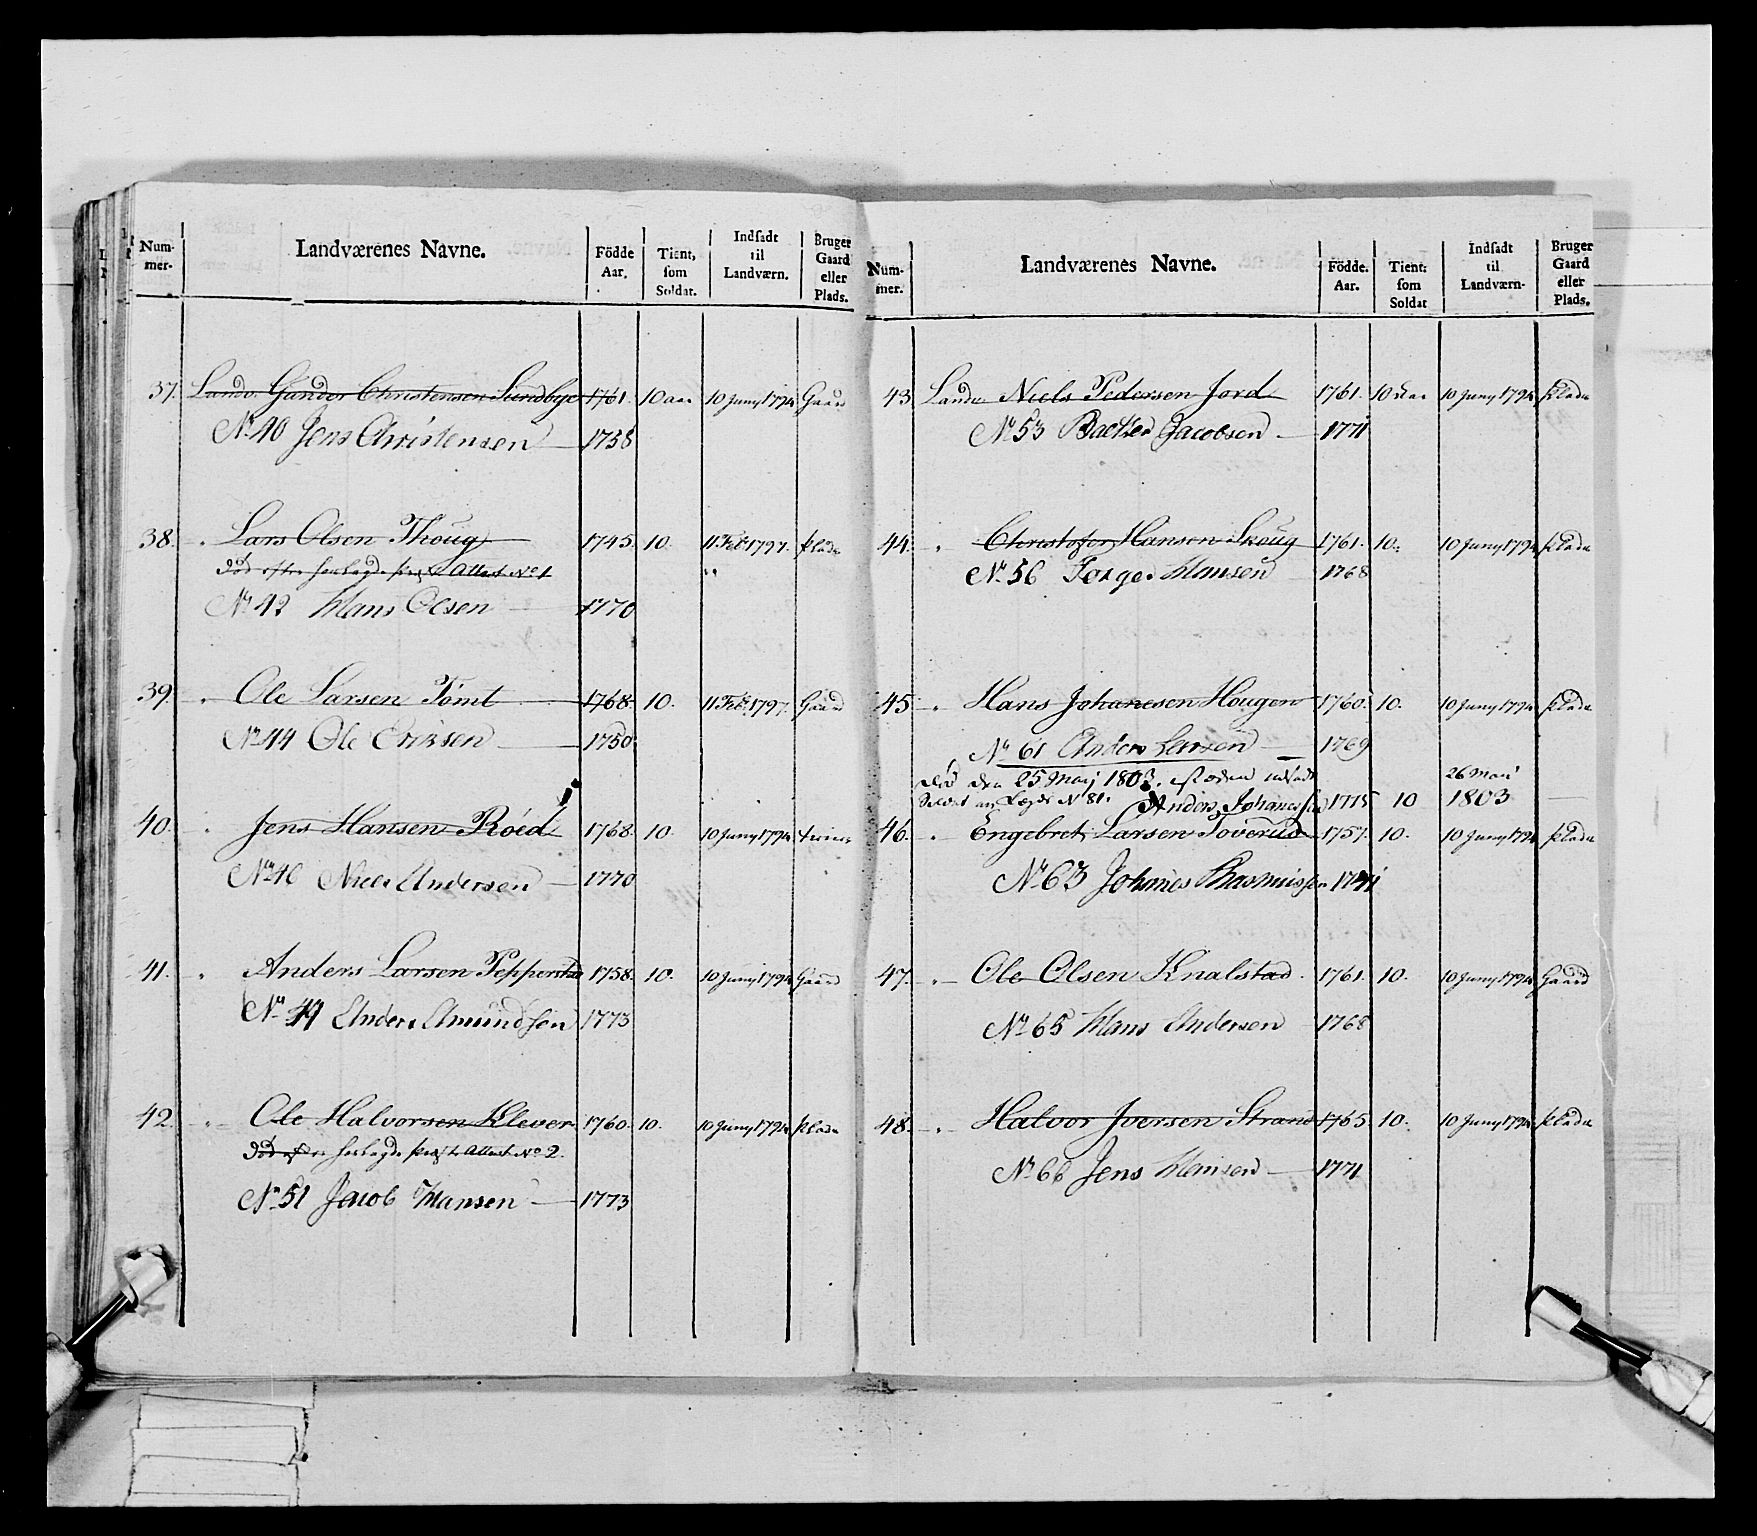 Num-mer.
Landværenes Navne.
Födde Aar.
Tient, som Soldat.
Indsadt til Landværn.
Bruger Gaard eller Plads.
37. Landv. Gunder Christensen Sundbye 1761. 10 aar 10 Juny 1794 Gaard
No. 40 Jens Christensen — 1758
38. " Lars Olsen Thoug 1745. 10. 11 Feb. 1797. Plads
Död efter Attest No 1
No 42 Hans Olsen — 1770
39. " Ole Larsen Tomt — 1768. 10. 11 Feb. 1797. Gaard
No 44 Ole Eriksen — 1750
40. " Jens Hansen Röed 1768. 10. 10 Juny 1794
No 46 Niels Andersen — 1770
41. " Anders Larsen 1758. 10. 10 Juny 1794 Gaard
No Anders Amundsen 1773
42. " Ole Halvorsen Klever 1760. 10. 10 Juny 1794 Plads
Attest No 2.
No 51 Jacob Hansen — 1773
Num-mer.
Landværenes Navne.
Födde. Aar.
Tient: som Soldat
Indsadt til Landværn.
Bruger Gaard eller Plads.
43 Landv Niels Pedersen Jord 1761. 10 aar 10 Juny 1794 Plads
No 53 Jacobsen — 1771
44. " Christofer Hansen Skoug 1761. 10. 10 Juny 1794 Plads
No. 56 Hansen 1768
45 " Hans Johanesen Hougen 1760. 10. 10 Juny 1794 Plads
No 61 Anders Larsen — 1769
Död den 25 May 1803. indsadt 26 Maii
Soldat Lægd No 81. Anders Johanessen 1775 10 1803 —
46. " Engebret Larsen Toverud 1757. 10. 10 Juny 1794 Plads
No 63 Johanes Rasmussen 1741
47. " Ole Olsen Knalstad. 1761. 10. 10 Juny 1794 Gaard
No 65 Hans Andersen 1768
48. " Halvor Iversen Strand 1765. 10. 10 Juny 1794. Plads
No 66 Jens Hansen — 1771